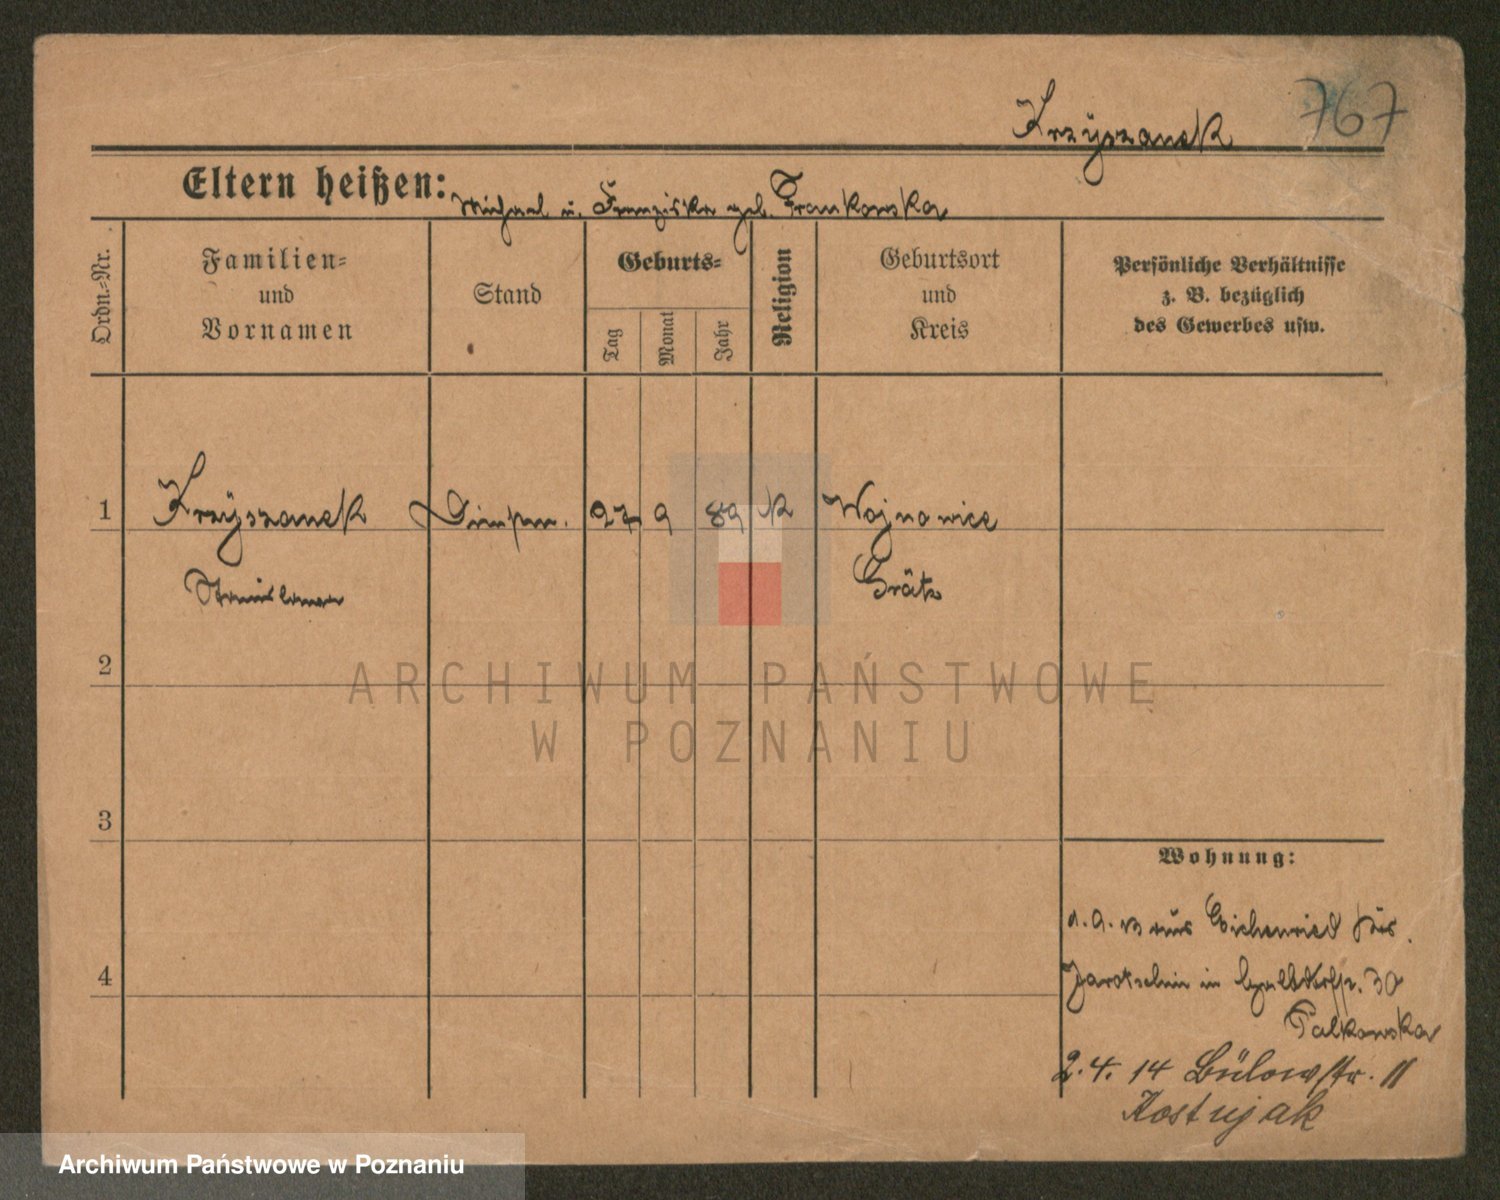 Krzÿszanek 767
Eltern heißen: Michael u. Franziska geb. Frankowska
Ordn.-Nr.
Familien-
und
Vornamen
Stand
Geburts-
Tag
Monat
Jahr
Religion
Geburtsort
und
Kreis
Persönliche Verhältnisse
z. B. bezüglich
des Gewerbes usw.
1 Krzÿszanek 27 9 89 K Wojnowice
Stanislaus Grätz
2
ARCHIWUM PAŃSTWOWE
W POZNANIU
3
Wohnung:
aus Eichenried
4
Jarotschin in 30
Palkowska
2.4.14 Bülowstr. 11
Kostujak
Archiwum Państwowe w Poznaniu